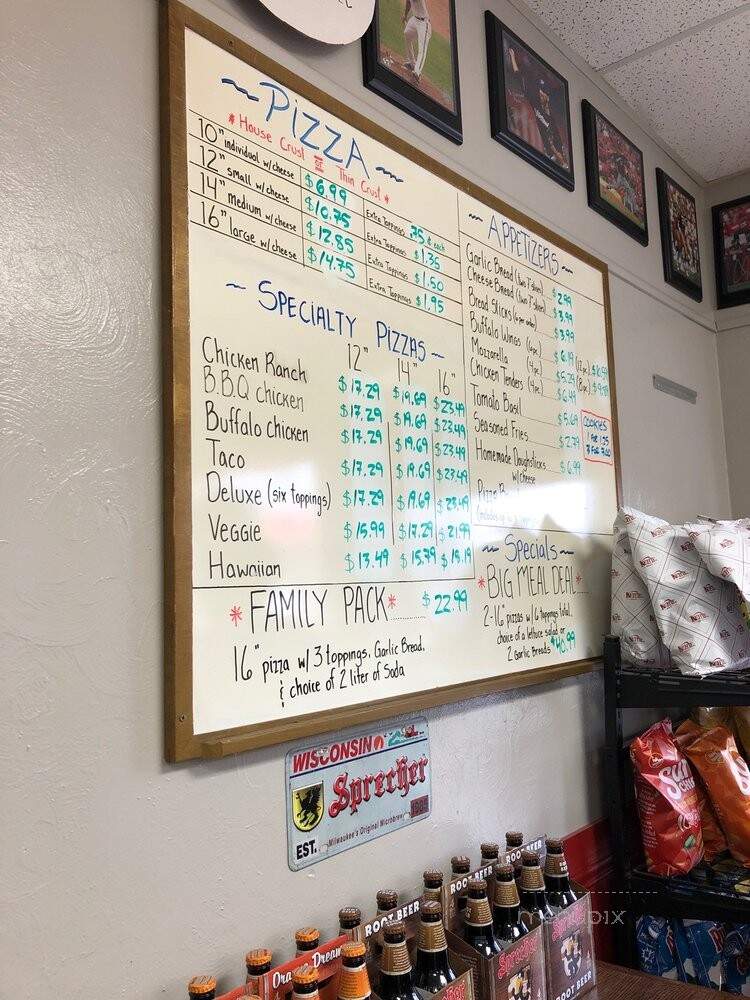 ~PIZZA~
* House Crust or Thin Crust *
10" individual w/cheese $6.99 Extra Toppings .75¢ each
12" small w/cheese $10.75 Extra Toppings $1.35
14" medium w/cheese $12.85 Extra Toppings $1.60
16" large w/cheese $14.75 Extra Toppings $1.95
~ SPECIALTY PIZZAS ~
12" 14" 16"
Chicken Ranch $17.29 $19.69 $23.49
B.B.Q chicken $17.29 $19.69 $23.49
Buffalo chicken $17.29 $19.69 $23.49
Taco $17.29 $19.69 $23.49
Deluxe (six toppings) $17.29 $19.69 $23.49
Veggie $15.99 $17.29 $21.99
Hawaiian $13.49 $15.79 $18.19
*FAMILY PACK* $22.99
16" pizza w/ 3 toppings, Garlic Bread,
& choice of 2 liter of Soda
~ APPETIZERS ~
Garlic Bread $2.99
Cheese Bread $3.99
Bread Sticks $3.99
Buffalo Wings (6pc.) $6.19
Mozzarella (4pc.) $5.29
Chicken Tenders (4pc.) $6.49
Tomato Basil $5.69
Seasoned Fries $2.79
Homemade Doughsticks $6.99
w/cheese
COOKIES
~ Specials ~
*BIG MEAL DEAL*
2-16" pizzas w/ 6 toppings total,
choice of a lettuce salad or
2 Garlic Breads $40.99
WISCONSIN
Sprecher
Milwaukee's Original Microbrewery
EST. 1985
ROOT BEER
ROOT BEER
ROOT BEER
Orange Dream
Sprecher
menupix